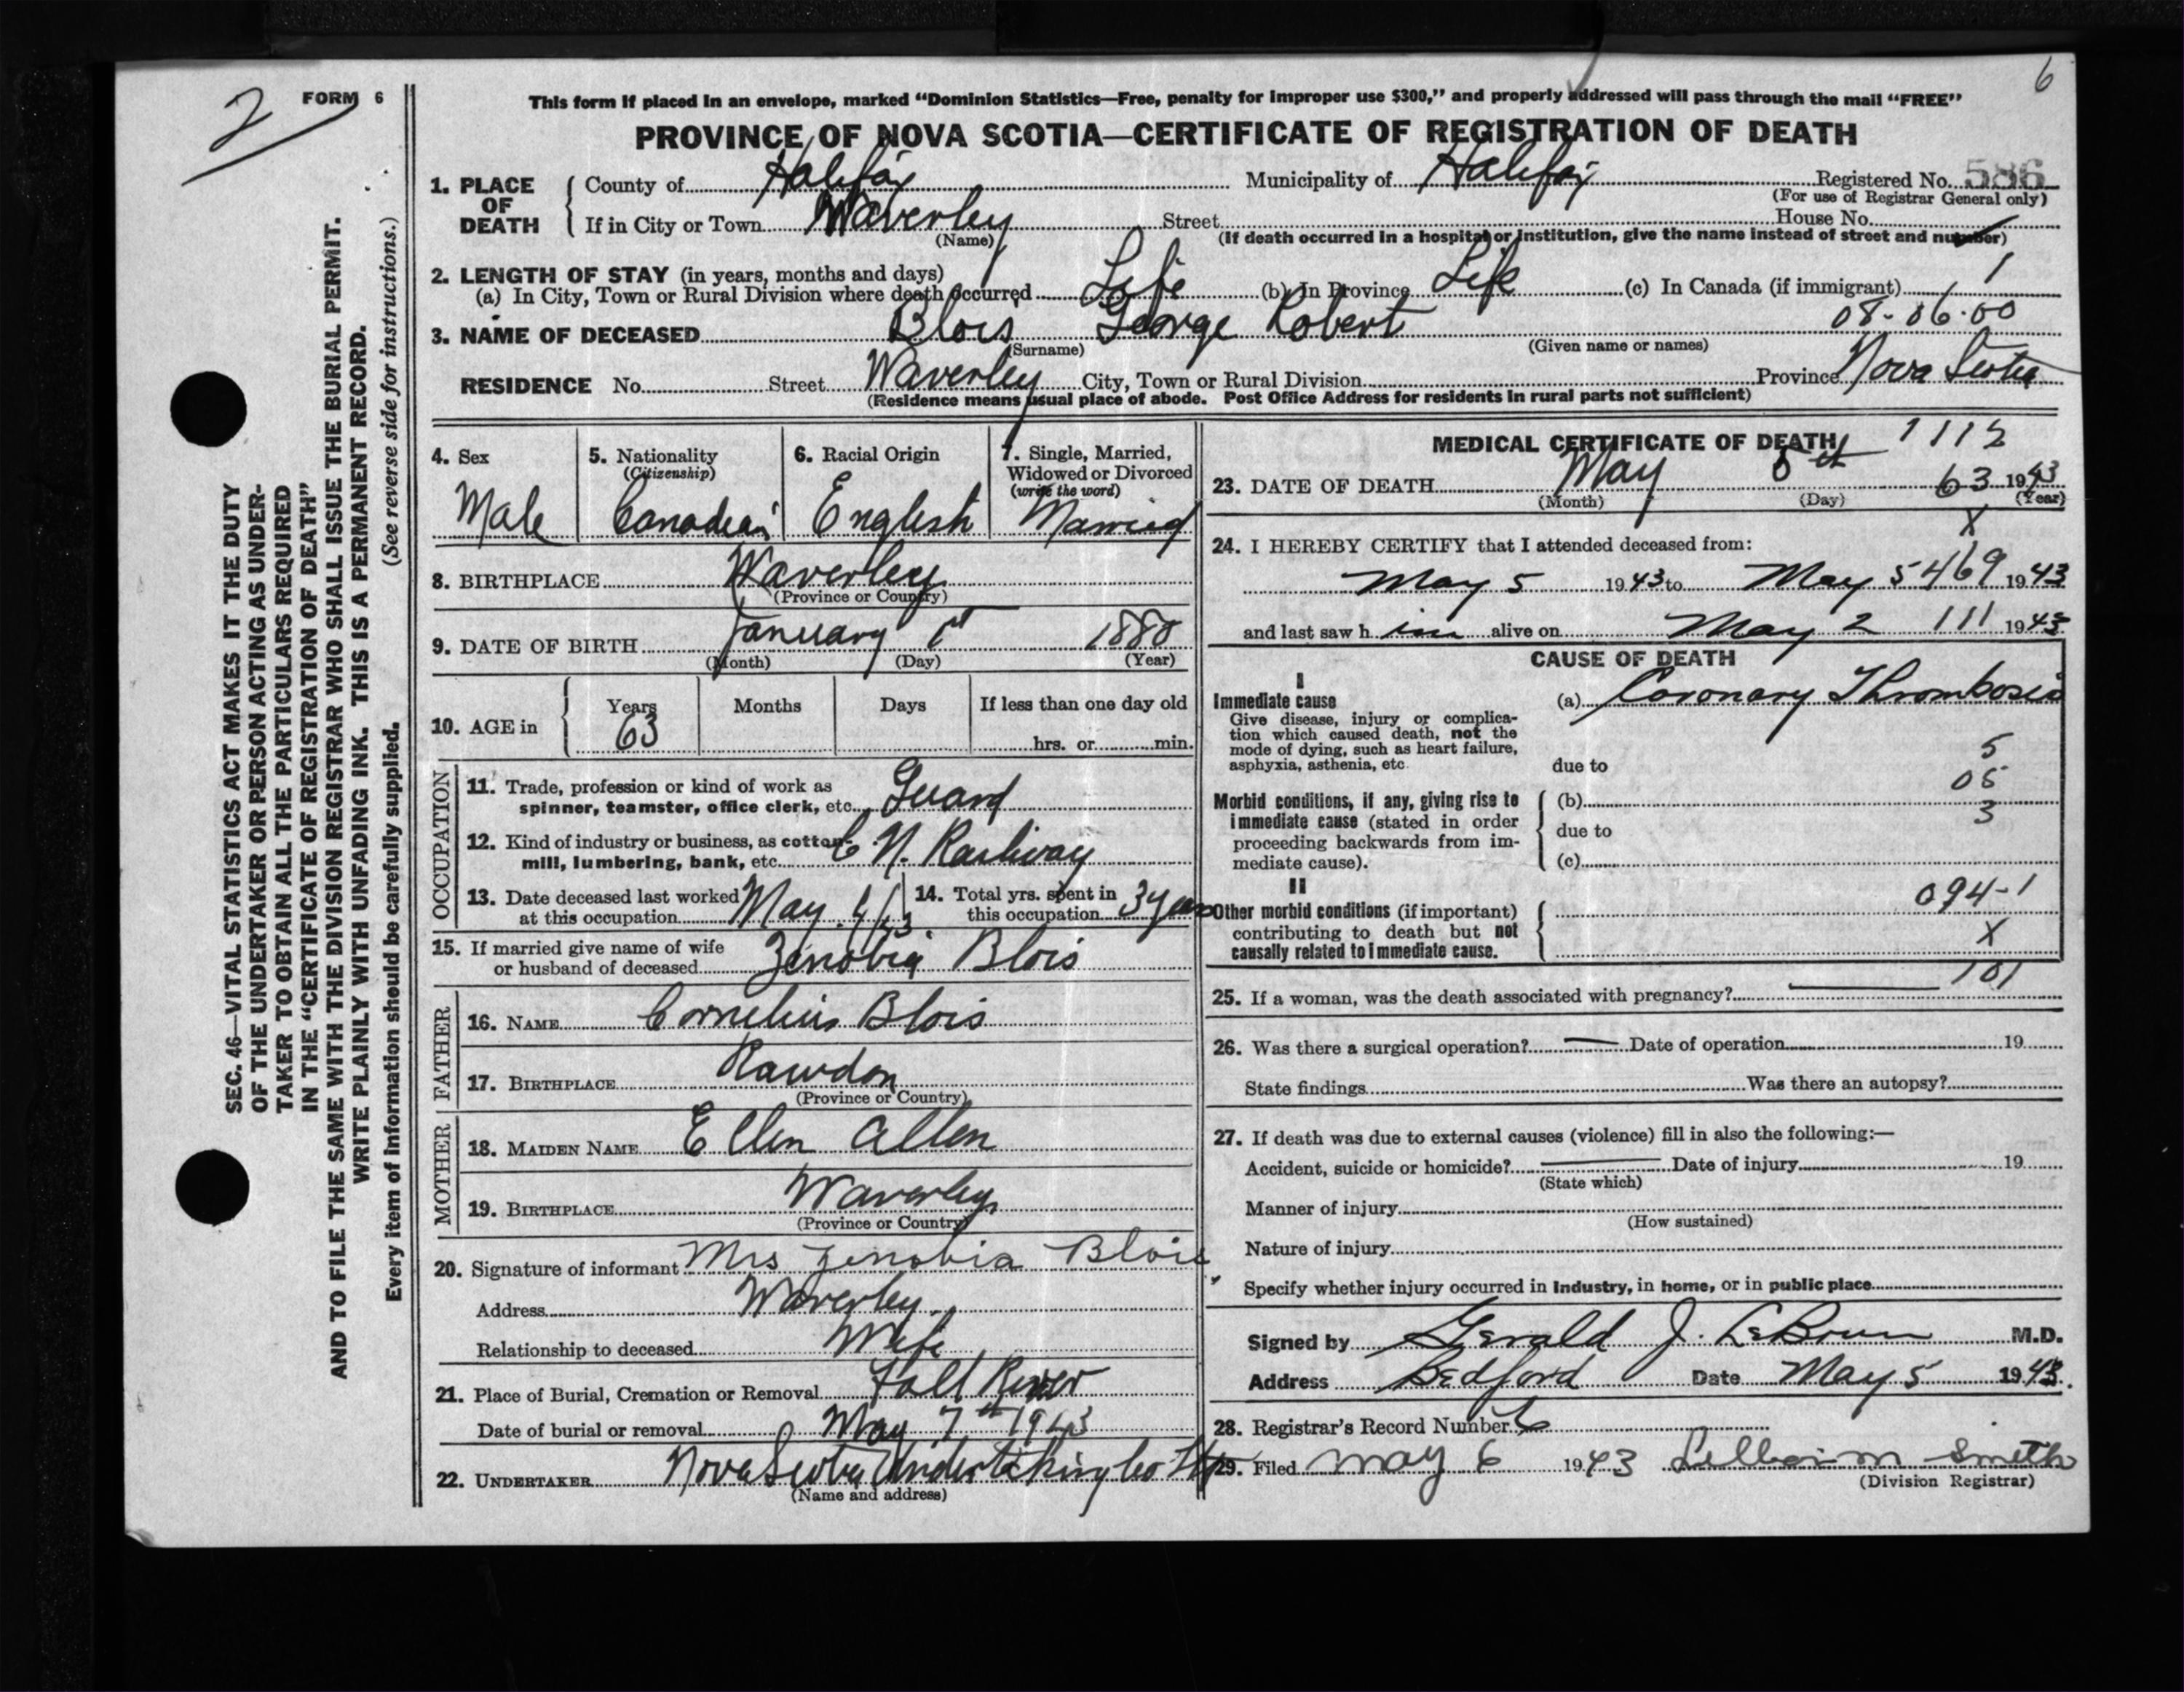 2
FORM 6
6
This form if placed in an envelope, marked “Dominion Statistics—Free, penalty for improper use $300,” and properly addressed will pass through the mail “FREE”
PROVINCE OF NOVA SCOTIA—CERTIFICATE OF REGISTRATION OF DEATH
1. PLACE OF DEATH
County of Halifax Municipality of Halifax Registered No. 586
(For use of Registrar General only)
If in City or Town Waverley Street House No.
(Name) (If death occurred in a hospital or institution, give the name instead of street and number)
2. LENGTH OF STAY (in years, months and days)
(a) In City, Town or Rural Division where death occurred Life (b) In Province Life (c) In Canada (if immigrant) 1
08-06.00
3. NAME OF DECEASED Blois George Robert
(Surname) (Given name or names)
RESIDENCE No. Street Waverley City, Town or Rural Division Province Nova Scotia
(Residence means usual place of abode. Post Office Address for residents in rural parts not sufficient)
4. Sex
Male
5. Nationality
(Citizenship)
Canadian
6. Racial Origin
English
7. Single, Married,
Widowed or Divorced
(write the word)
Married
8. BIRTHPLACE Waverley
(Province or Country)
9. DATE OF BIRTH January 1st 1880
(Month) (Day) (Year)
10. AGE in
Years Months Days If less than one day old
63 hrs. or min.
OCCUPATION
11. Trade, profession or kind of work as
spinner, teamster, office clerk, etc. Guard
12. Kind of industry or business, as cotton-
mill, lumbering, bank, etc. C. N. Railway
13. Date deceased last worked
at this occupation May 4/43
14. Total yrs. spent in
this occupation 3 years
15. If married give name of wife
or husband of deceased Zenobia Blois
FATHER
16. NAME Cornelius Blois
17. BIRTHPLACE Rawdon
(Province or Country)
MOTHER
18. MAIDEN NAME Ellen Allen
19. BIRTHPLACE Waverley
(Province or Country)
20. Signature of informant Mrs Zenobia Blois
Address Waverley.
Relationship to deceased Wife
21. Place of Burial, Cremation or Removal Fall River
Date of burial or removal May 7th 1943
22. UNDERTAKER Nova Scotia Undertaking Co
(Name and address)
MEDICAL CERTIFICATE OF DEATH 1112
23. DATE OF DEATH May 5th 63 1943
(Month) (Day) (Year)
X
24. I HEREBY CERTIFY that I attended deceased from:
May 5 1943 to May 5 469 1943
and last saw him alive on May 2 111 1943
CAUSE OF DEATH
I
Immediate cause
Give disease, injury or complica-
tion which caused death, not the
mode of dying, such as heart failure,
asphyxia, asthenia, etc.
(a) Coronary Thrombosis
due to
5
05
3
Morbid conditions, if any, giving rise to
immediate cause (stated in order
proceeding backwards from im-
mediate cause).
(b)
due to
(c)
II
Other morbid conditions (if important)
contributing to death but not
causally related to immediate cause.
094-1
X
101
25. If a woman, was the death associated with pregnancy?
26. Was there a surgical operation? Date of operation 19
State findings Was there an autopsy?
27. If death was due to external causes (violence) fill in also the following:—
Accident, suicide or homicide? Date of injury 19
(State which)
Manner of injury
(How sustained)
Nature of injury
Specify whether injury occurred in industry, in home, or in public place
Signed by Gerald J. LeBrun M.D.
Address Bedford Date May 5 1943.
28. Registrar's Record Number 6
29. Filed May 6 1943 Lillian M Smith
(Division Registrar)
SEC. 46—VITAL STATISTICS ACT MAKES IT THE DUTY
OF THE UNDERTAKER OR PERSON ACTING AS UNDER-
TAKER TO OBTAIN ALL THE PARTICULARS REQUIRED
IN THE “CERTIFICATE OF REGISTRATION OF DEATH”
AND TO FILE THE SAME WITH THE DIVISION REGISTRAR WHO SHALL ISSUE THE BURIAL PERMIT.
WRITE PLAINLY WITH UNFADING INK. THIS IS A PERMANENT RECORD.
Every item of information should be carefully supplied. (See reverse side for instructions.)